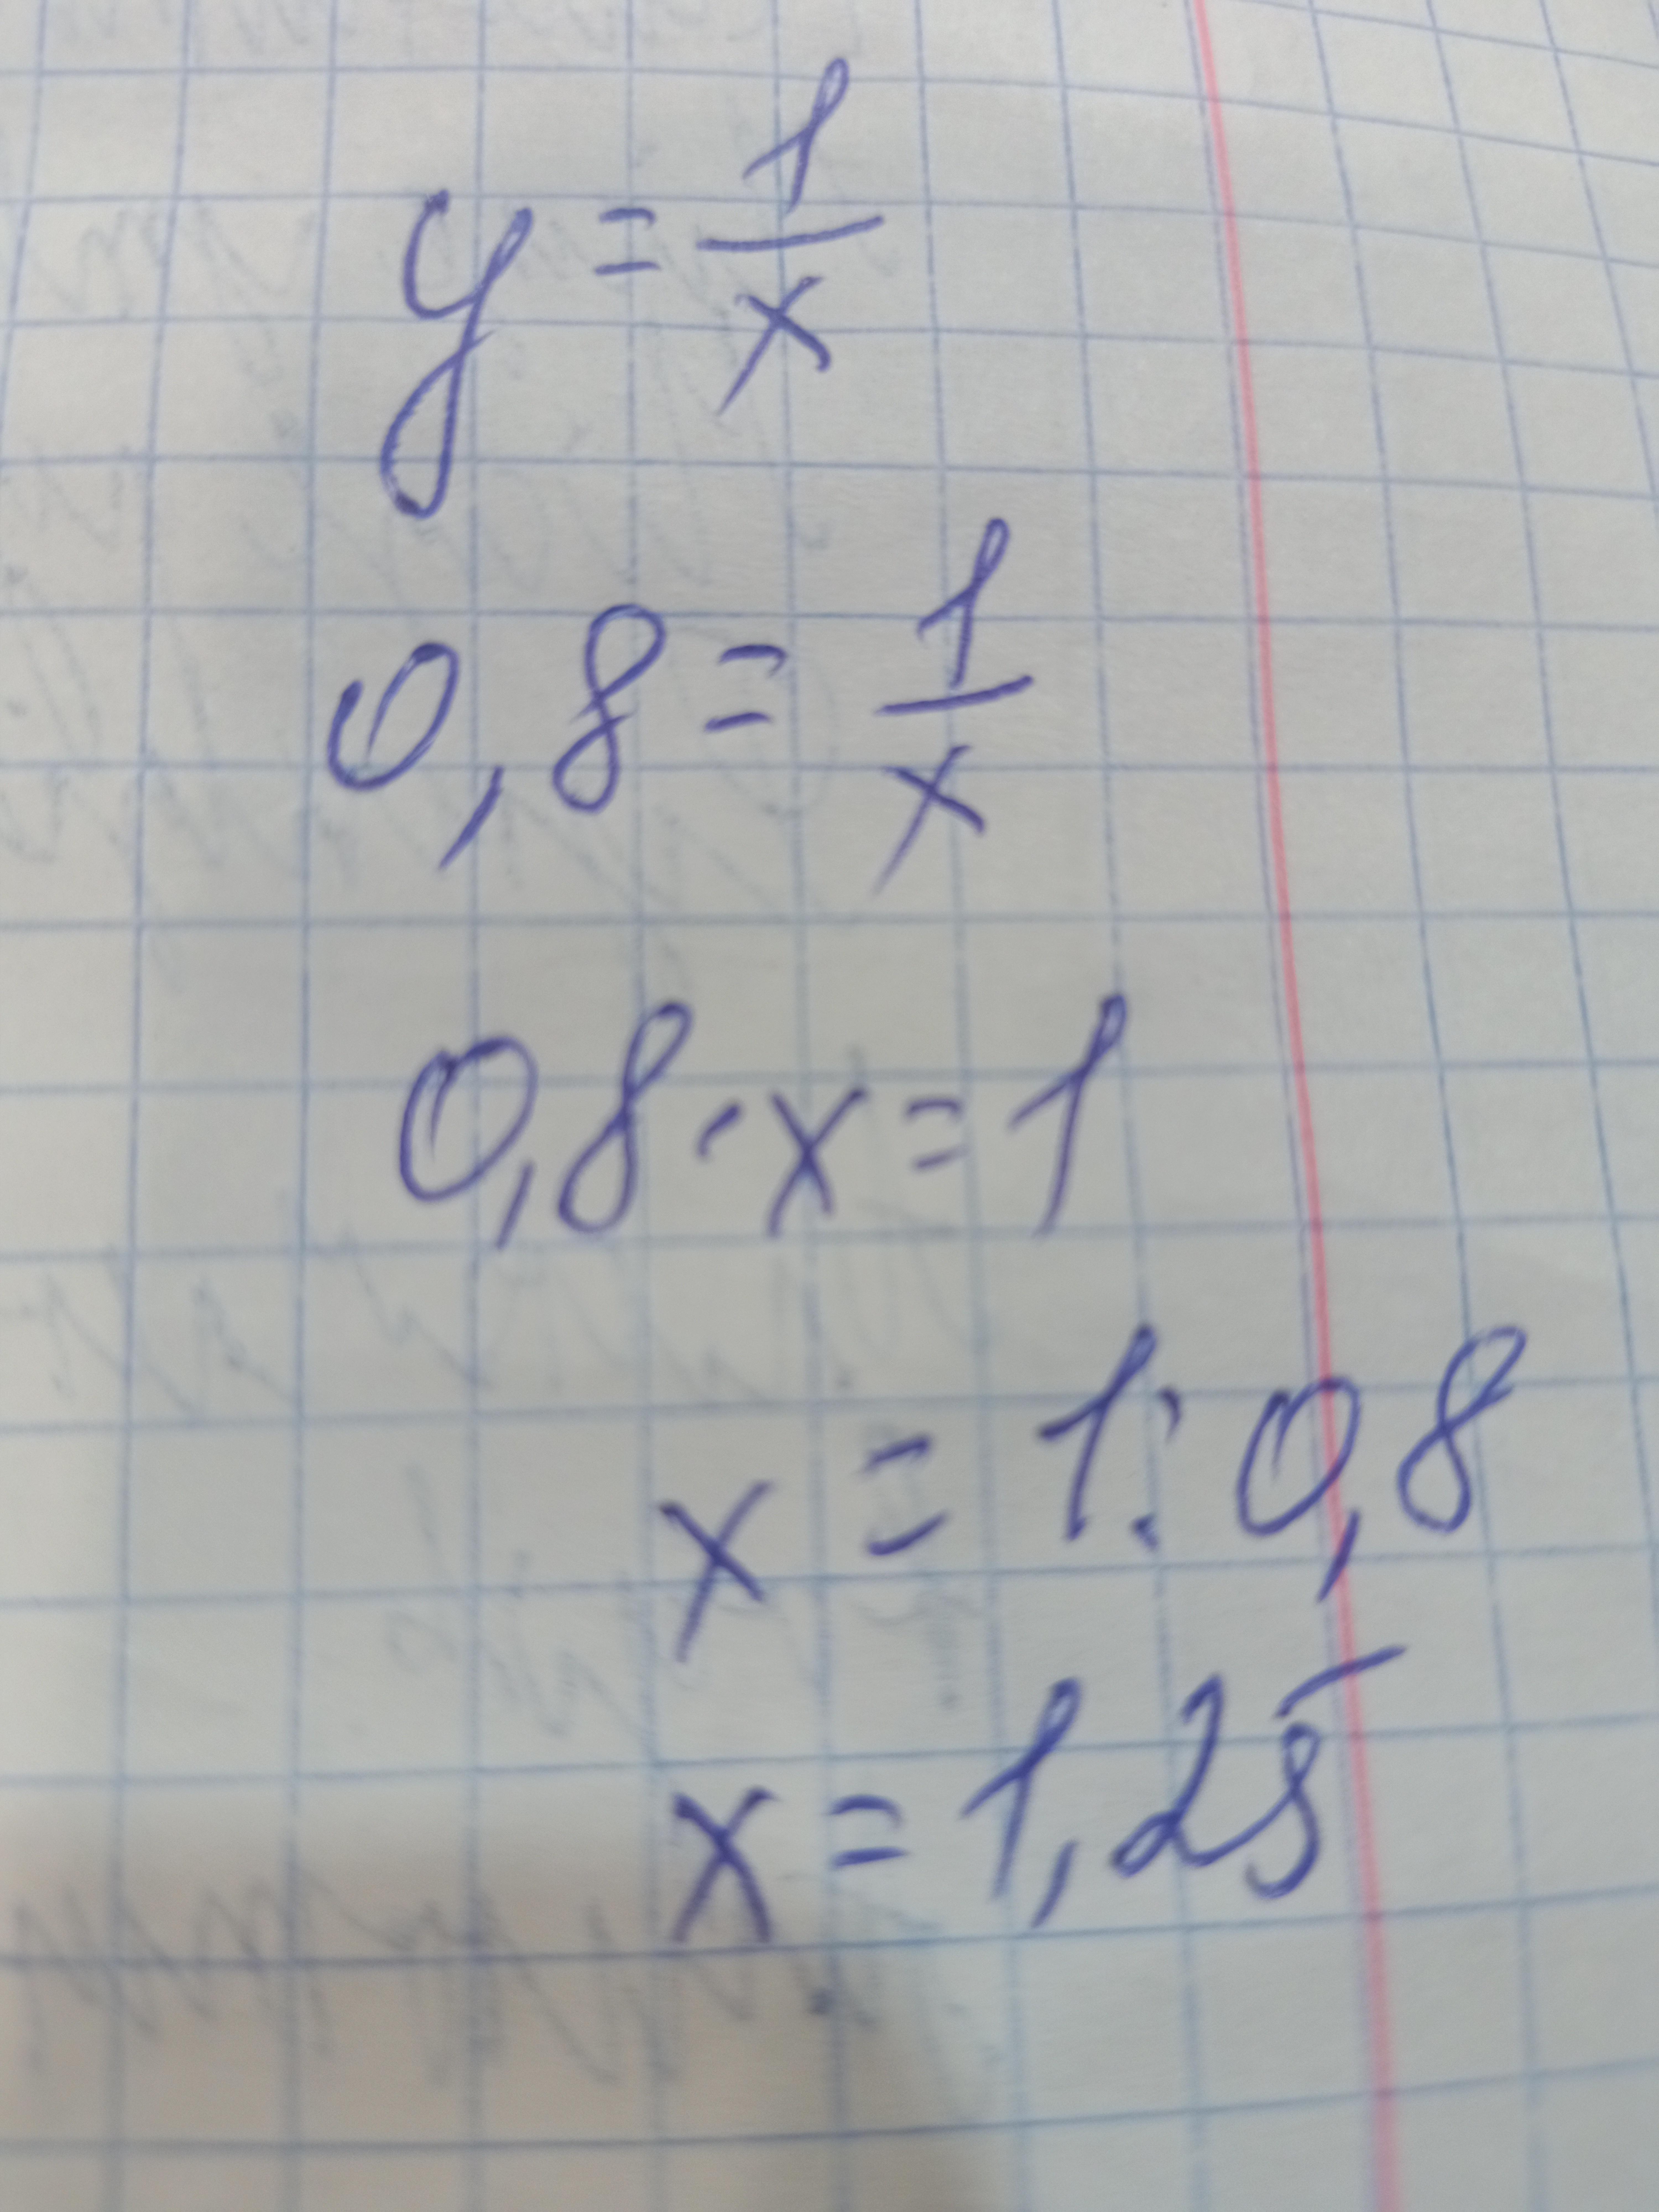 y = 1/x
0,8 = 1/x
0,8 · x = 1
x = 1 : 0,8
x = 1,25